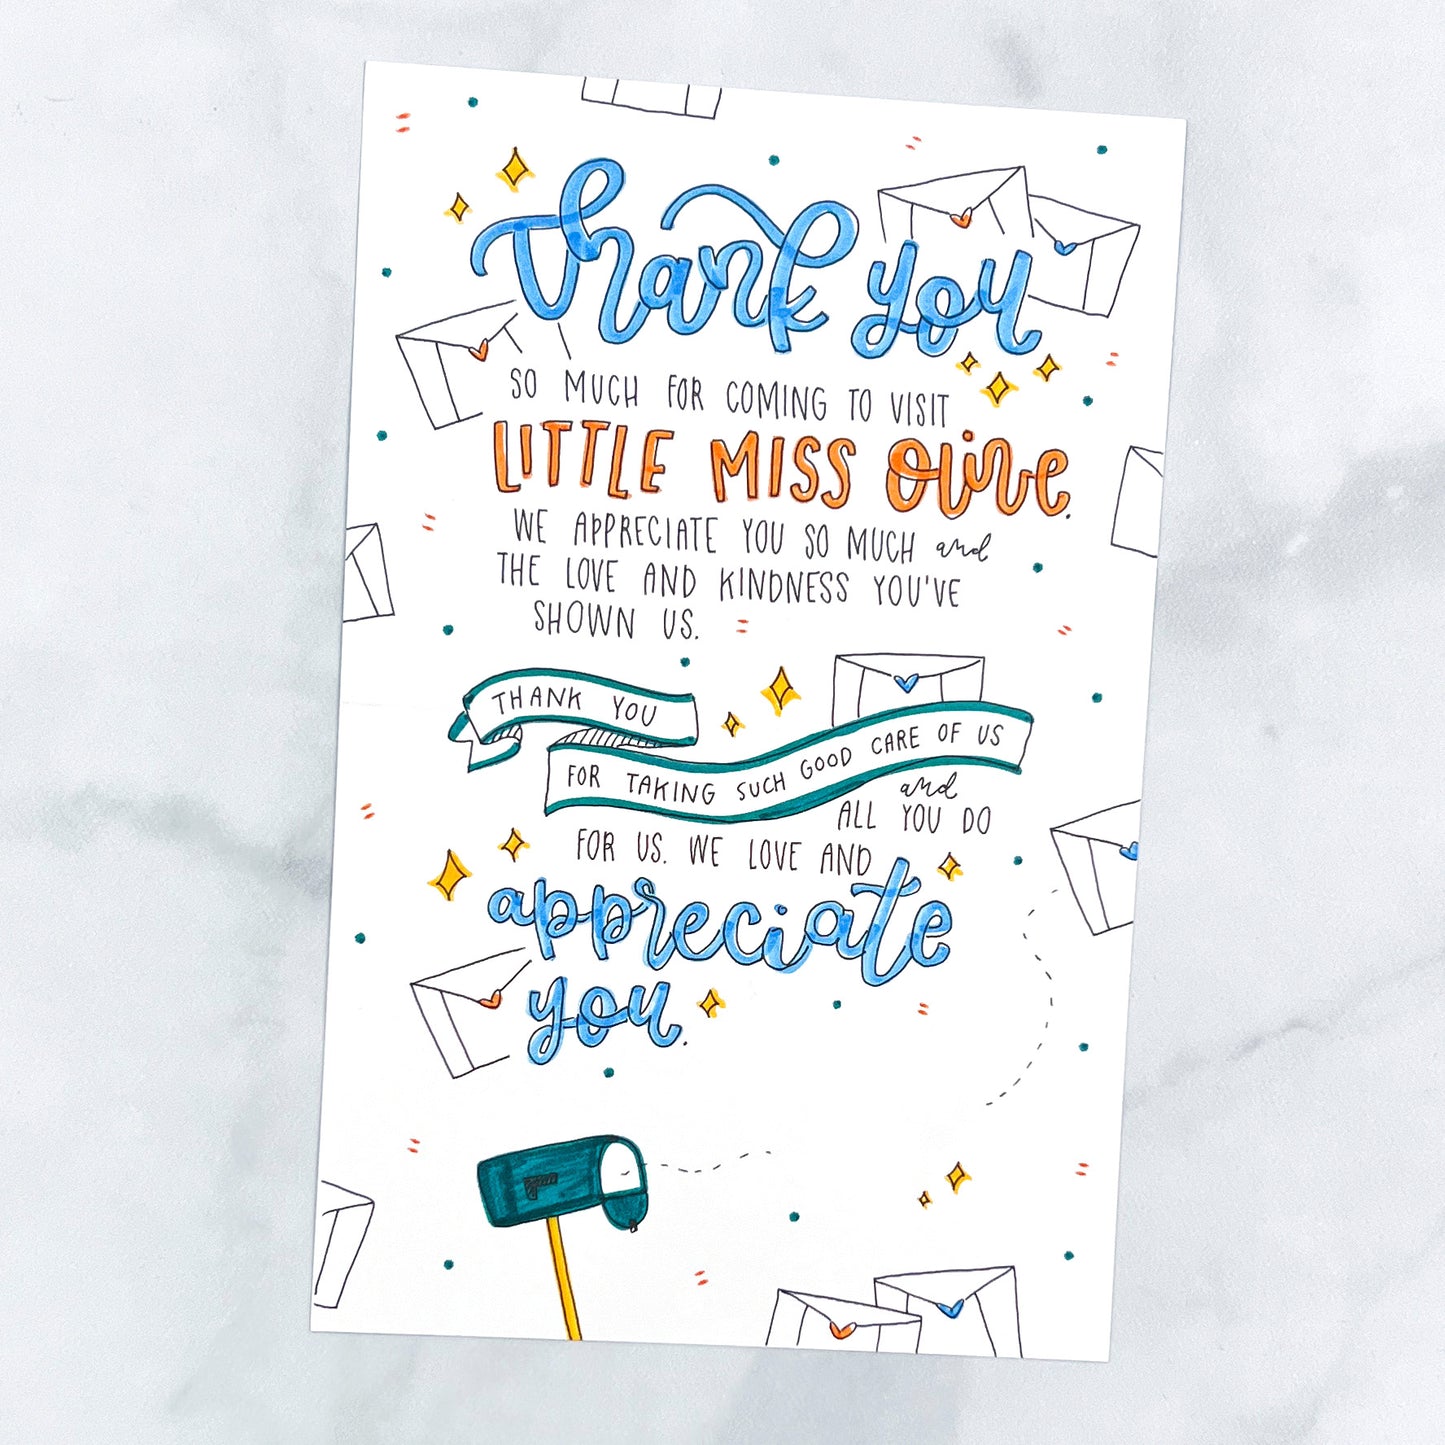 thank you
SO MUCH FOR COMING TO VISIT
LITTLE MISS Olive.
WE APPRECIATE YOU SO MUCH and
THE LOVE AND KINDNESS YOU'VE
SHOWN US.
THANK YOU
FOR TAKING SUCH GOOD CARE OF US
and
ALL YOU DO
FOR US. WE LOVE AND
appreciate
you.